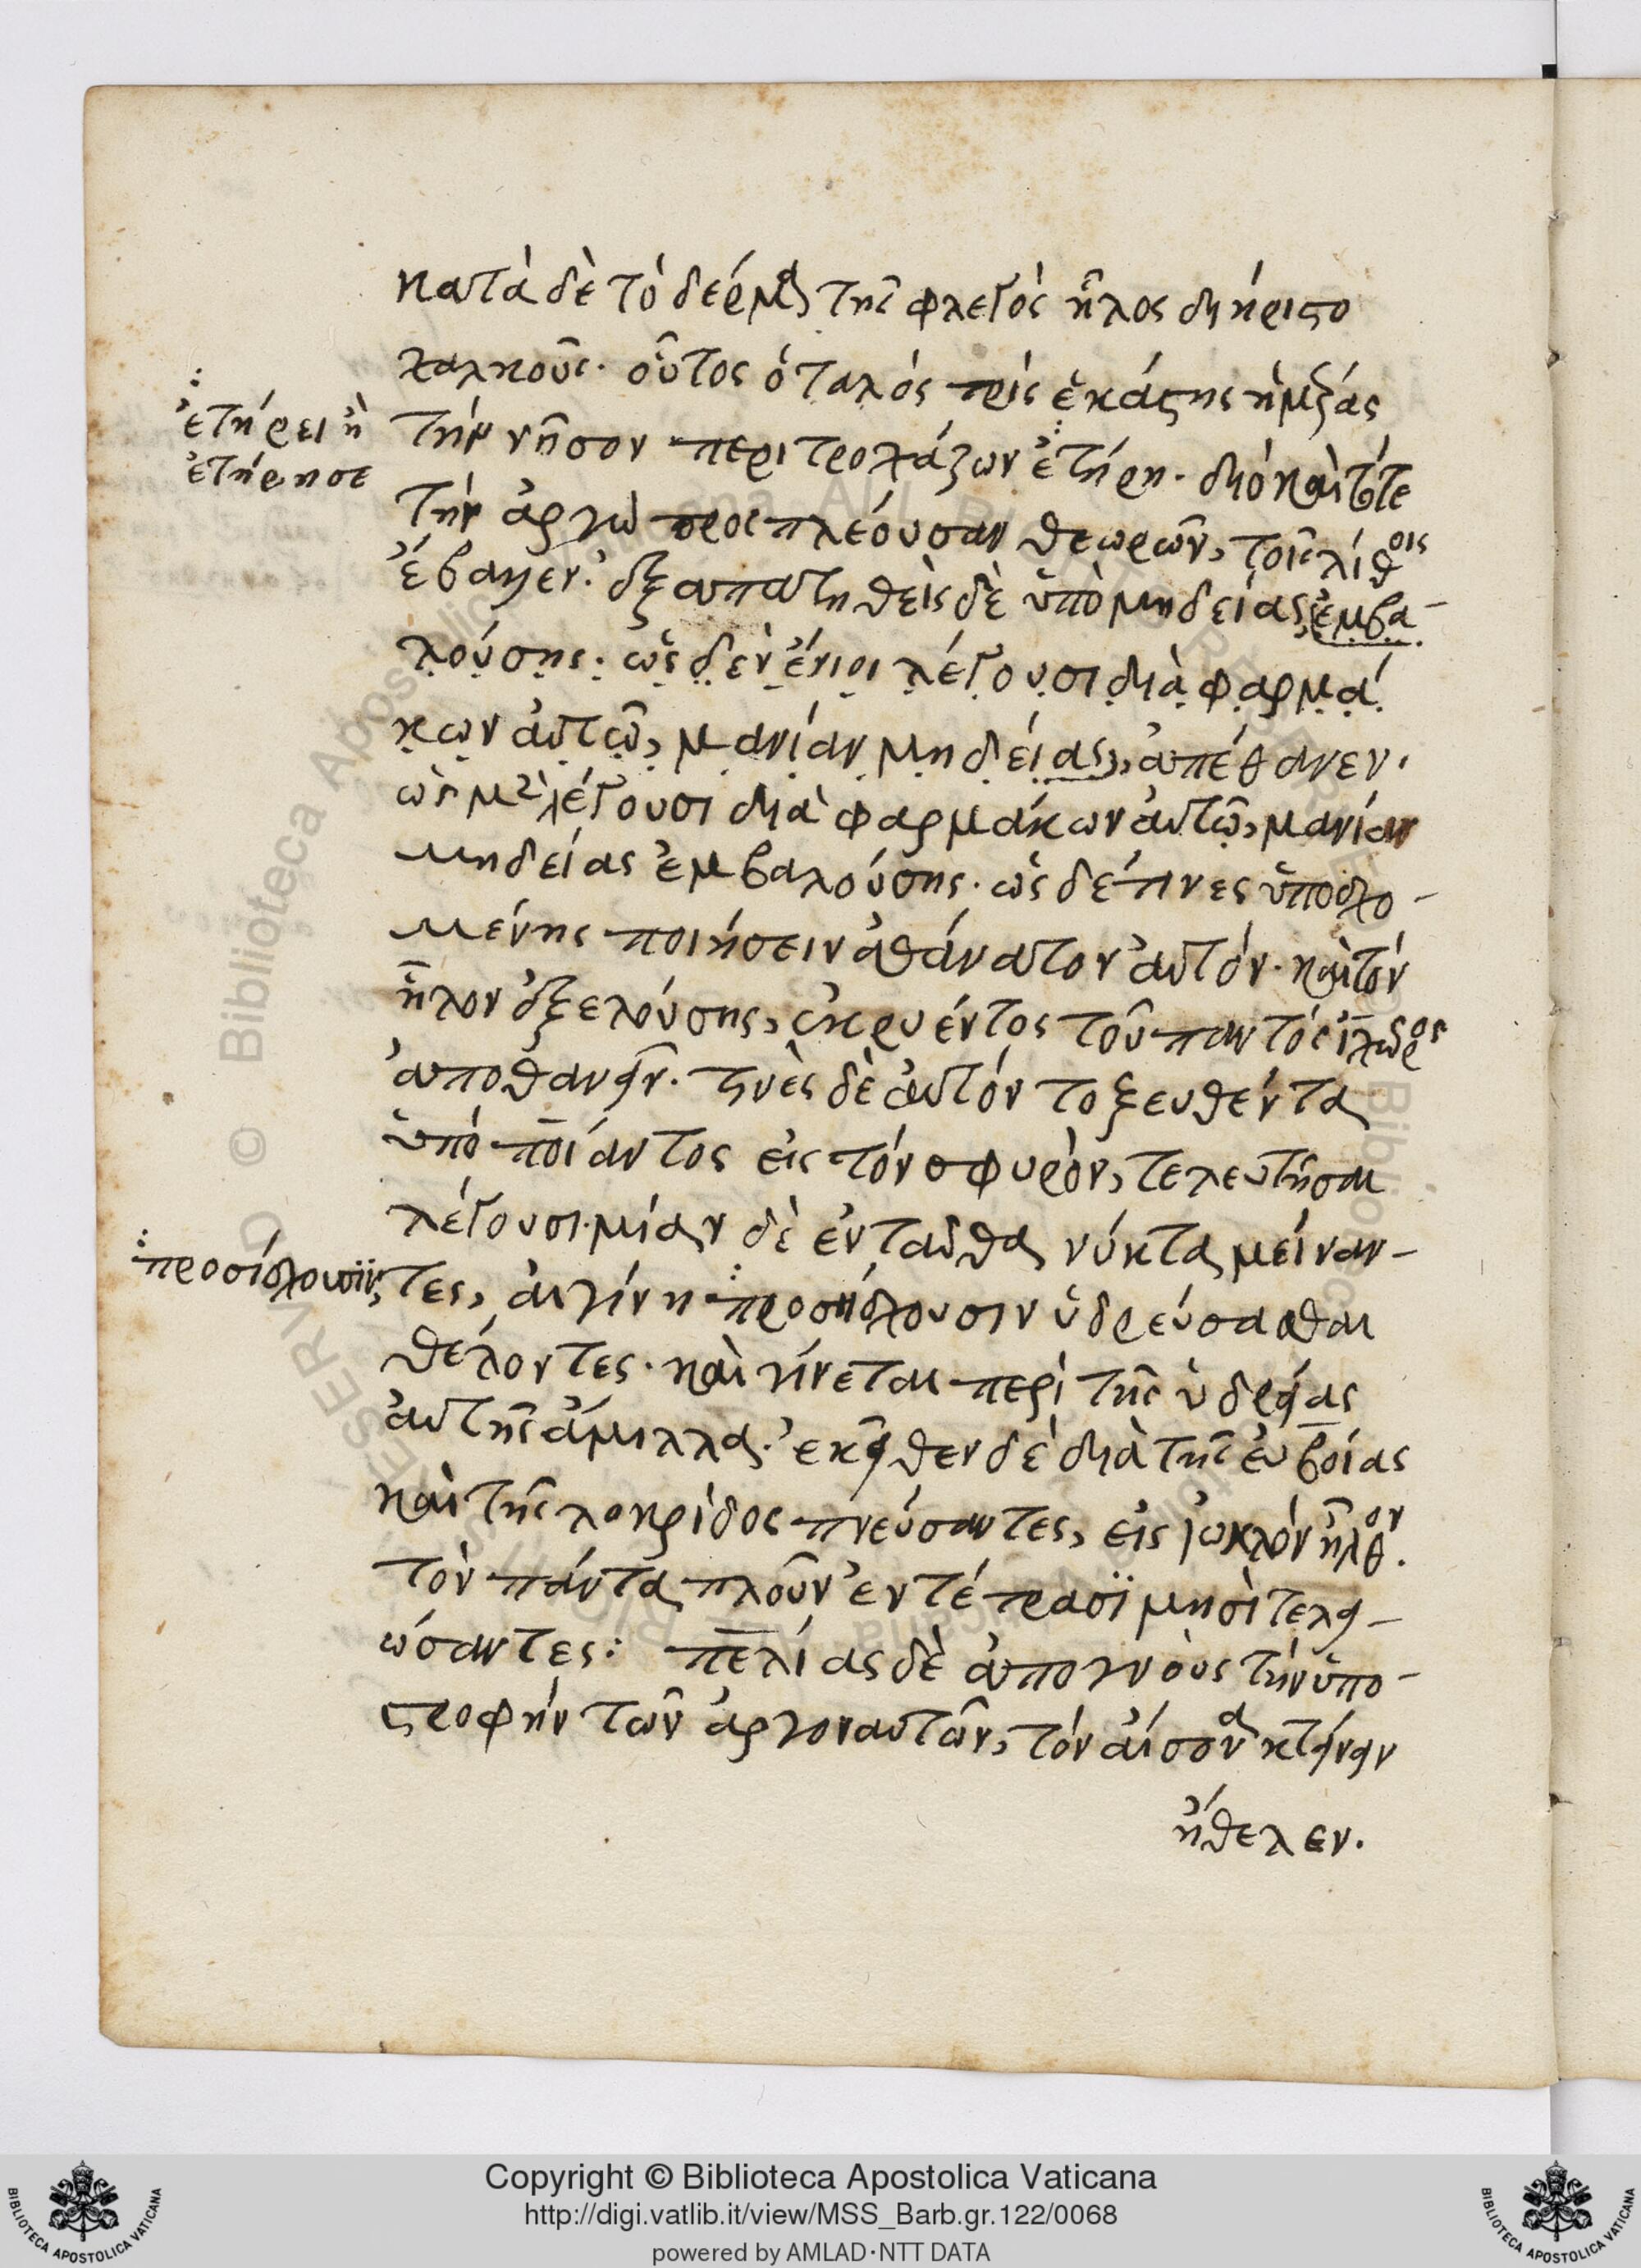 κατὰ δὲ τὸ δέρμα τῆς φλεβὸς ἧλος διήρειστο
χαλκοῦς· οὗτος ὁ ταλὸς τρὶς ἑκάστης ἡμέρας
ἐτήρει ἢ
ἐτήρησε
τὴν νῆσον περιτροχάζων ἐτήρη· διὸ καὶ τότε
τὴν ἀργὼ προσπλέουσαν θεωρῶν, τοῖς λίθοις
ἔβαλλεν· ἐξαπατηθεὶς δὲ ὑπὸ μηδείας, ἐμβα-
λούσης· ὡς δὲν ἔνιοι λέγουσι διὰ φαρμά
κων αὐτῷ, μανίαν μηδείας, ἀπέθανεν·
ὡς μὲν λέγουσι διὰ φαρμάκων αὐτῷ, μανίαν
μηδείας ἐμβαλούσης· ὡς δέ τινες ὑποσχο-
μένης ποιήσειν ἀθάνατον αὐτόν· καὶ τὸν
ἧλον ἐξελούσης, ἐκρυέντος τοῦ παντὸς ἰχῶρος
ἀποθανεῖν· τινὲς δὲ αὐτὸν τοξευθέντα
ὑπὸ ποίαντος εἰς τὸν σφυρὸν, τελευτῆσαι
λέγουσι· μίαν δὲ ἐνταῦθα νύκτα μείναν-
προσίσχουσιν,
τες, αἰγίνη προσήσχουσιν ὑδρεύσασθαι
θέλοντες· καὶ γίνεται περὶ τῆς ὑδρείας
αὐτῆς ἅμιλλα· ἐκεῖθεν δὲ διὰ τῆς εὐβοίας
καὶ τῆς λοκρίδος πλεύσαντες, εἰς ἰωλκὸν ἦλθον.
τὸν πάντα πλοῦν ἐν τέτρασϊ μησὶ τελει-
ώσαντες: πελίας δὲ ἀπογνοὺς τὴν ὑπο-
στροφὴν τῶν ἀργοναυτῶν, τὸν αἴσονα κτείνειν
ἤθελεν.
Copyright © Biblioteca Apostolica Vaticana
http://digi.vatlib.it/view/MSS_Barb.gr.122/0068
powered by AMLAD·NTT DATA